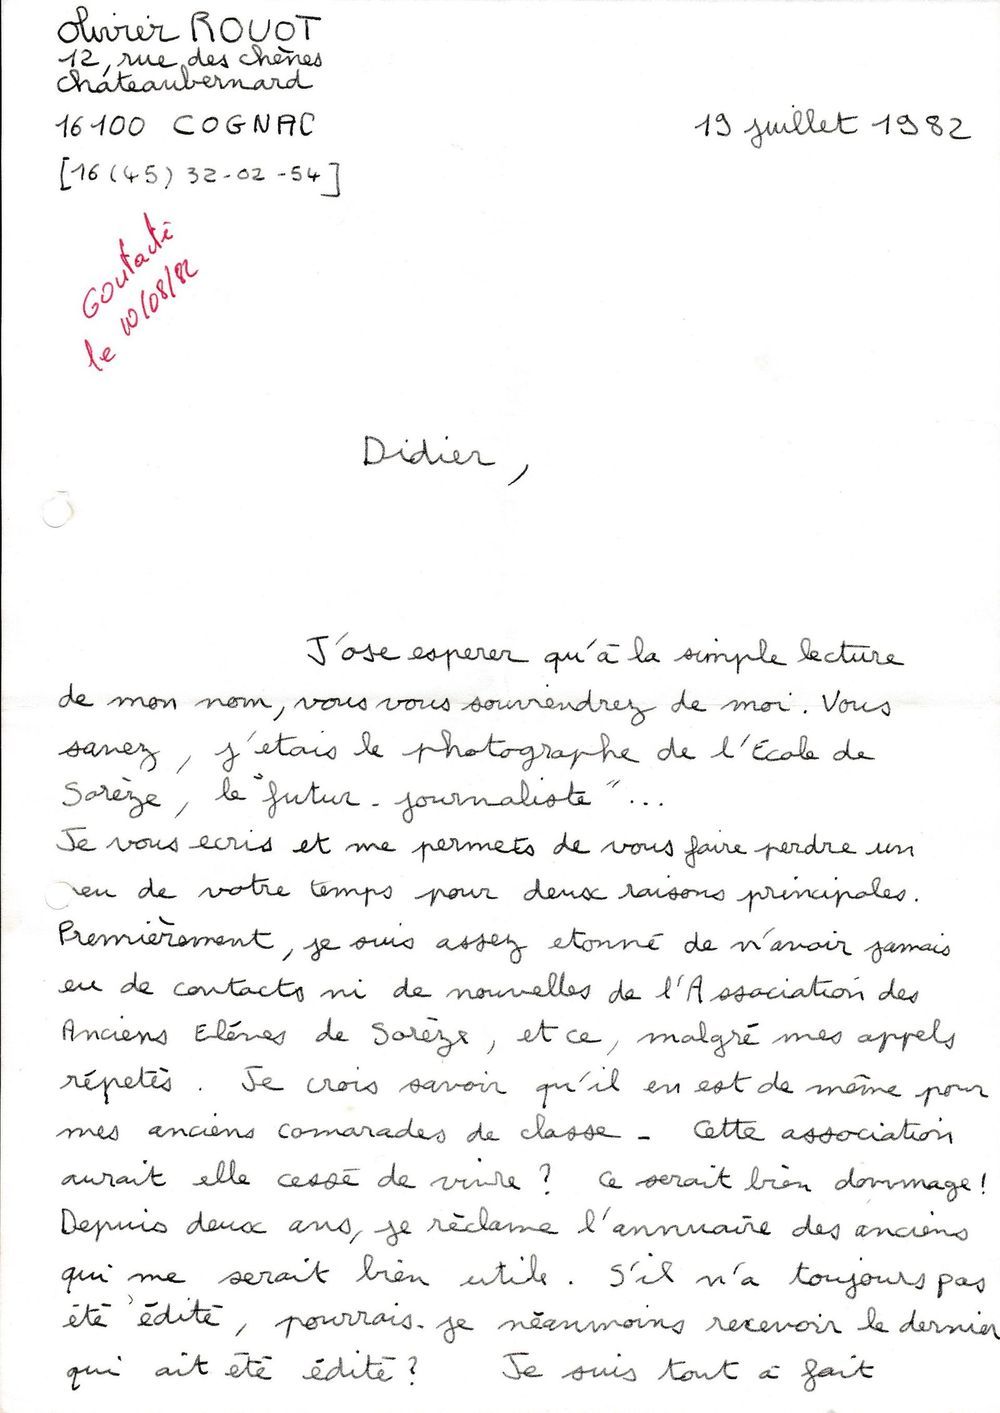 Olivier ROUOT
12, rue des chênes
Châteaubernard
16100 COGNAC
[16 (45) 32-02-54]
19 juillet 1982
Contacté
le 10/08/82
Didier,
J'ose esperer qu'à la simple lecture
de mon nom, vous vous souviendrez de moi. Vous
savez, j'etais le photographe de l'École de
Sorèze, le "futur-journaliste"...
Je vous ecris et me permets de vous faire perdre un
peu de votre temps pour deux raisons principales.
Premièrement, je suis assez etonné de n'avoir jamais
eu de contacts ni de nouvelles de l'Association des
Anciens Elèves de Sorèze, et ce, malgré mes appels
répetés. Je crois savoir qu'il en est de même pour
mes anciens camarades de classe - Cette association
aurait elle cessé de vivre ? Ce serait bien dommage !
Depuis deux ans, je réclame l'annuaire des anciens
qui me serait bien utile. S'il n'a toujours pas
été édité, pourrais-je néanmoins recevoir le dernier
qui ait été édité ? Je suis tout à fait